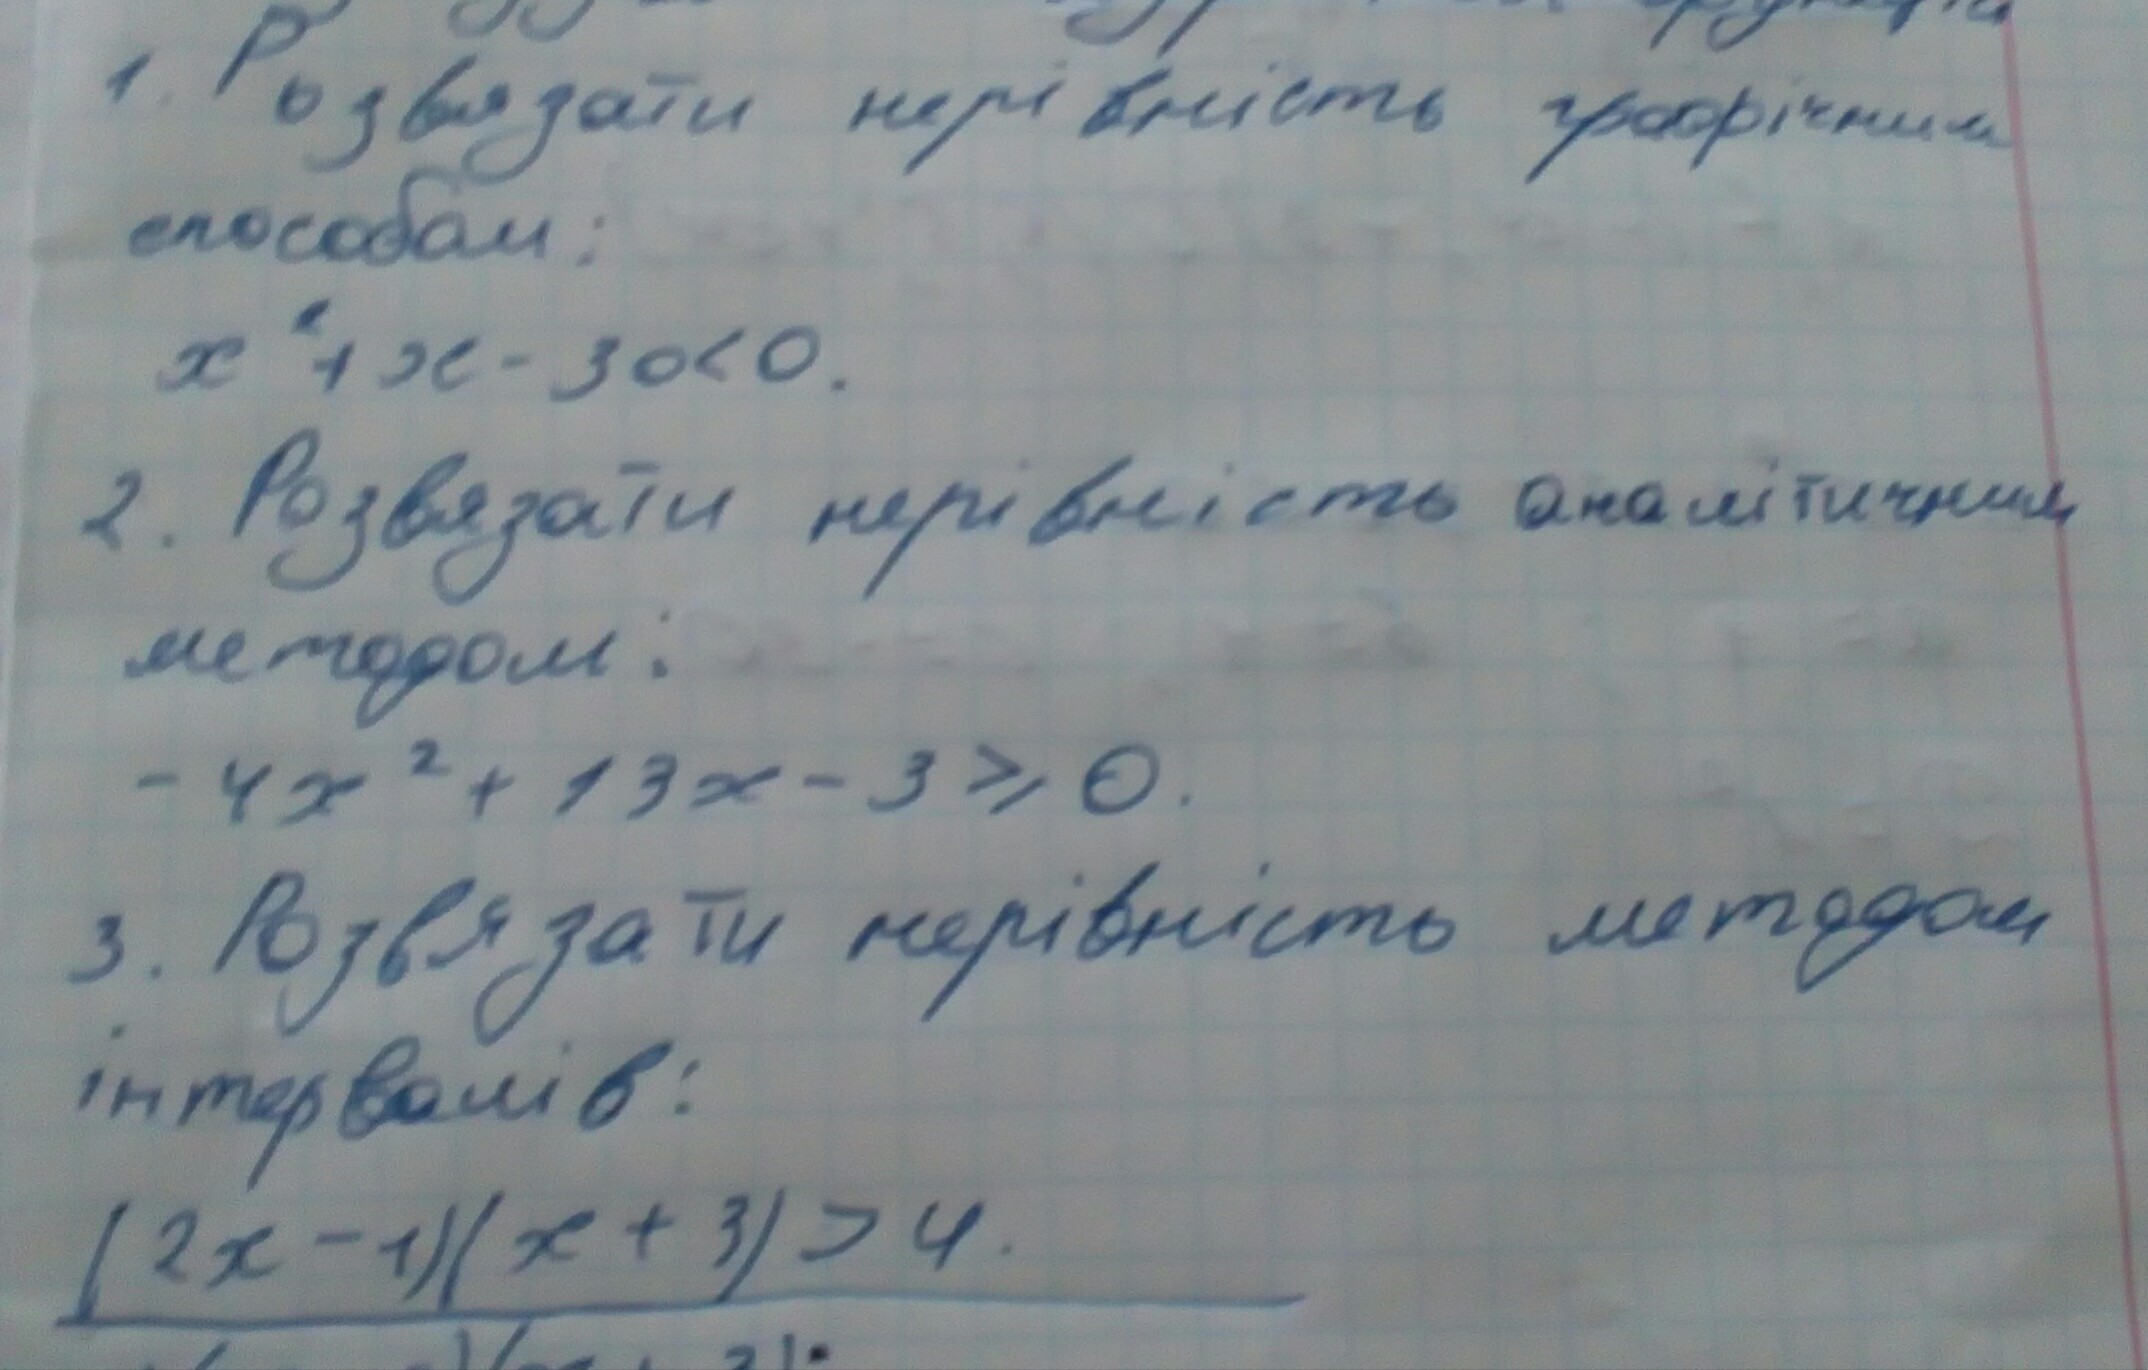 1. Розвязати нерівність графічним
способом:
x² + x - 30 < 0.
2. Розвязати нерівність аналітичним
методом:
- 4x² + 13x - 3 ⩾ 0.
3. Розвязати нерівність методом
інтервалів:
(2x - 1)(x + 3) > 4.